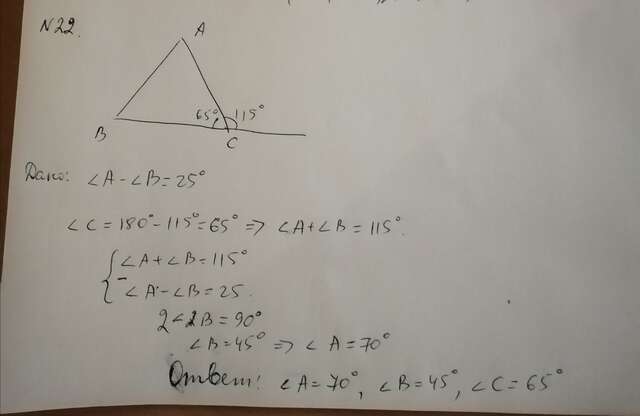 N22.
A
65° 115°
B
C
Дано: ∠A-∠B=25°
∠C=180°-115°=65° => ∠A+∠B=115°.
{∠A+∠B=115°
- ∠A-∠B=25.
2∠B=90°
∠B=45° => ∠A=70°
Ответ: ∠A=70°, ∠B=45°, ∠C=65°